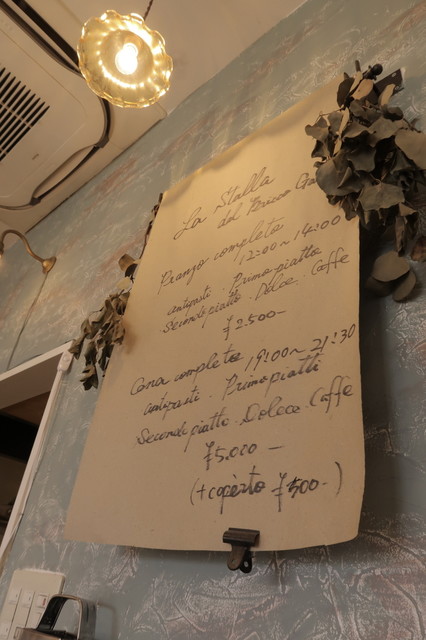 La Stalla
del Bricco Ga
Pranzo completo
12:00~14:00
antipasti . Primo piatto
Secondo piatto . Dolce . Caffè
¥2.500-
Cena completo 19:00~21:30
antipasti . Primo piatti
Secondo piatto . Dolce . Caffè
¥5.000 -
(+coperto ¥500-)